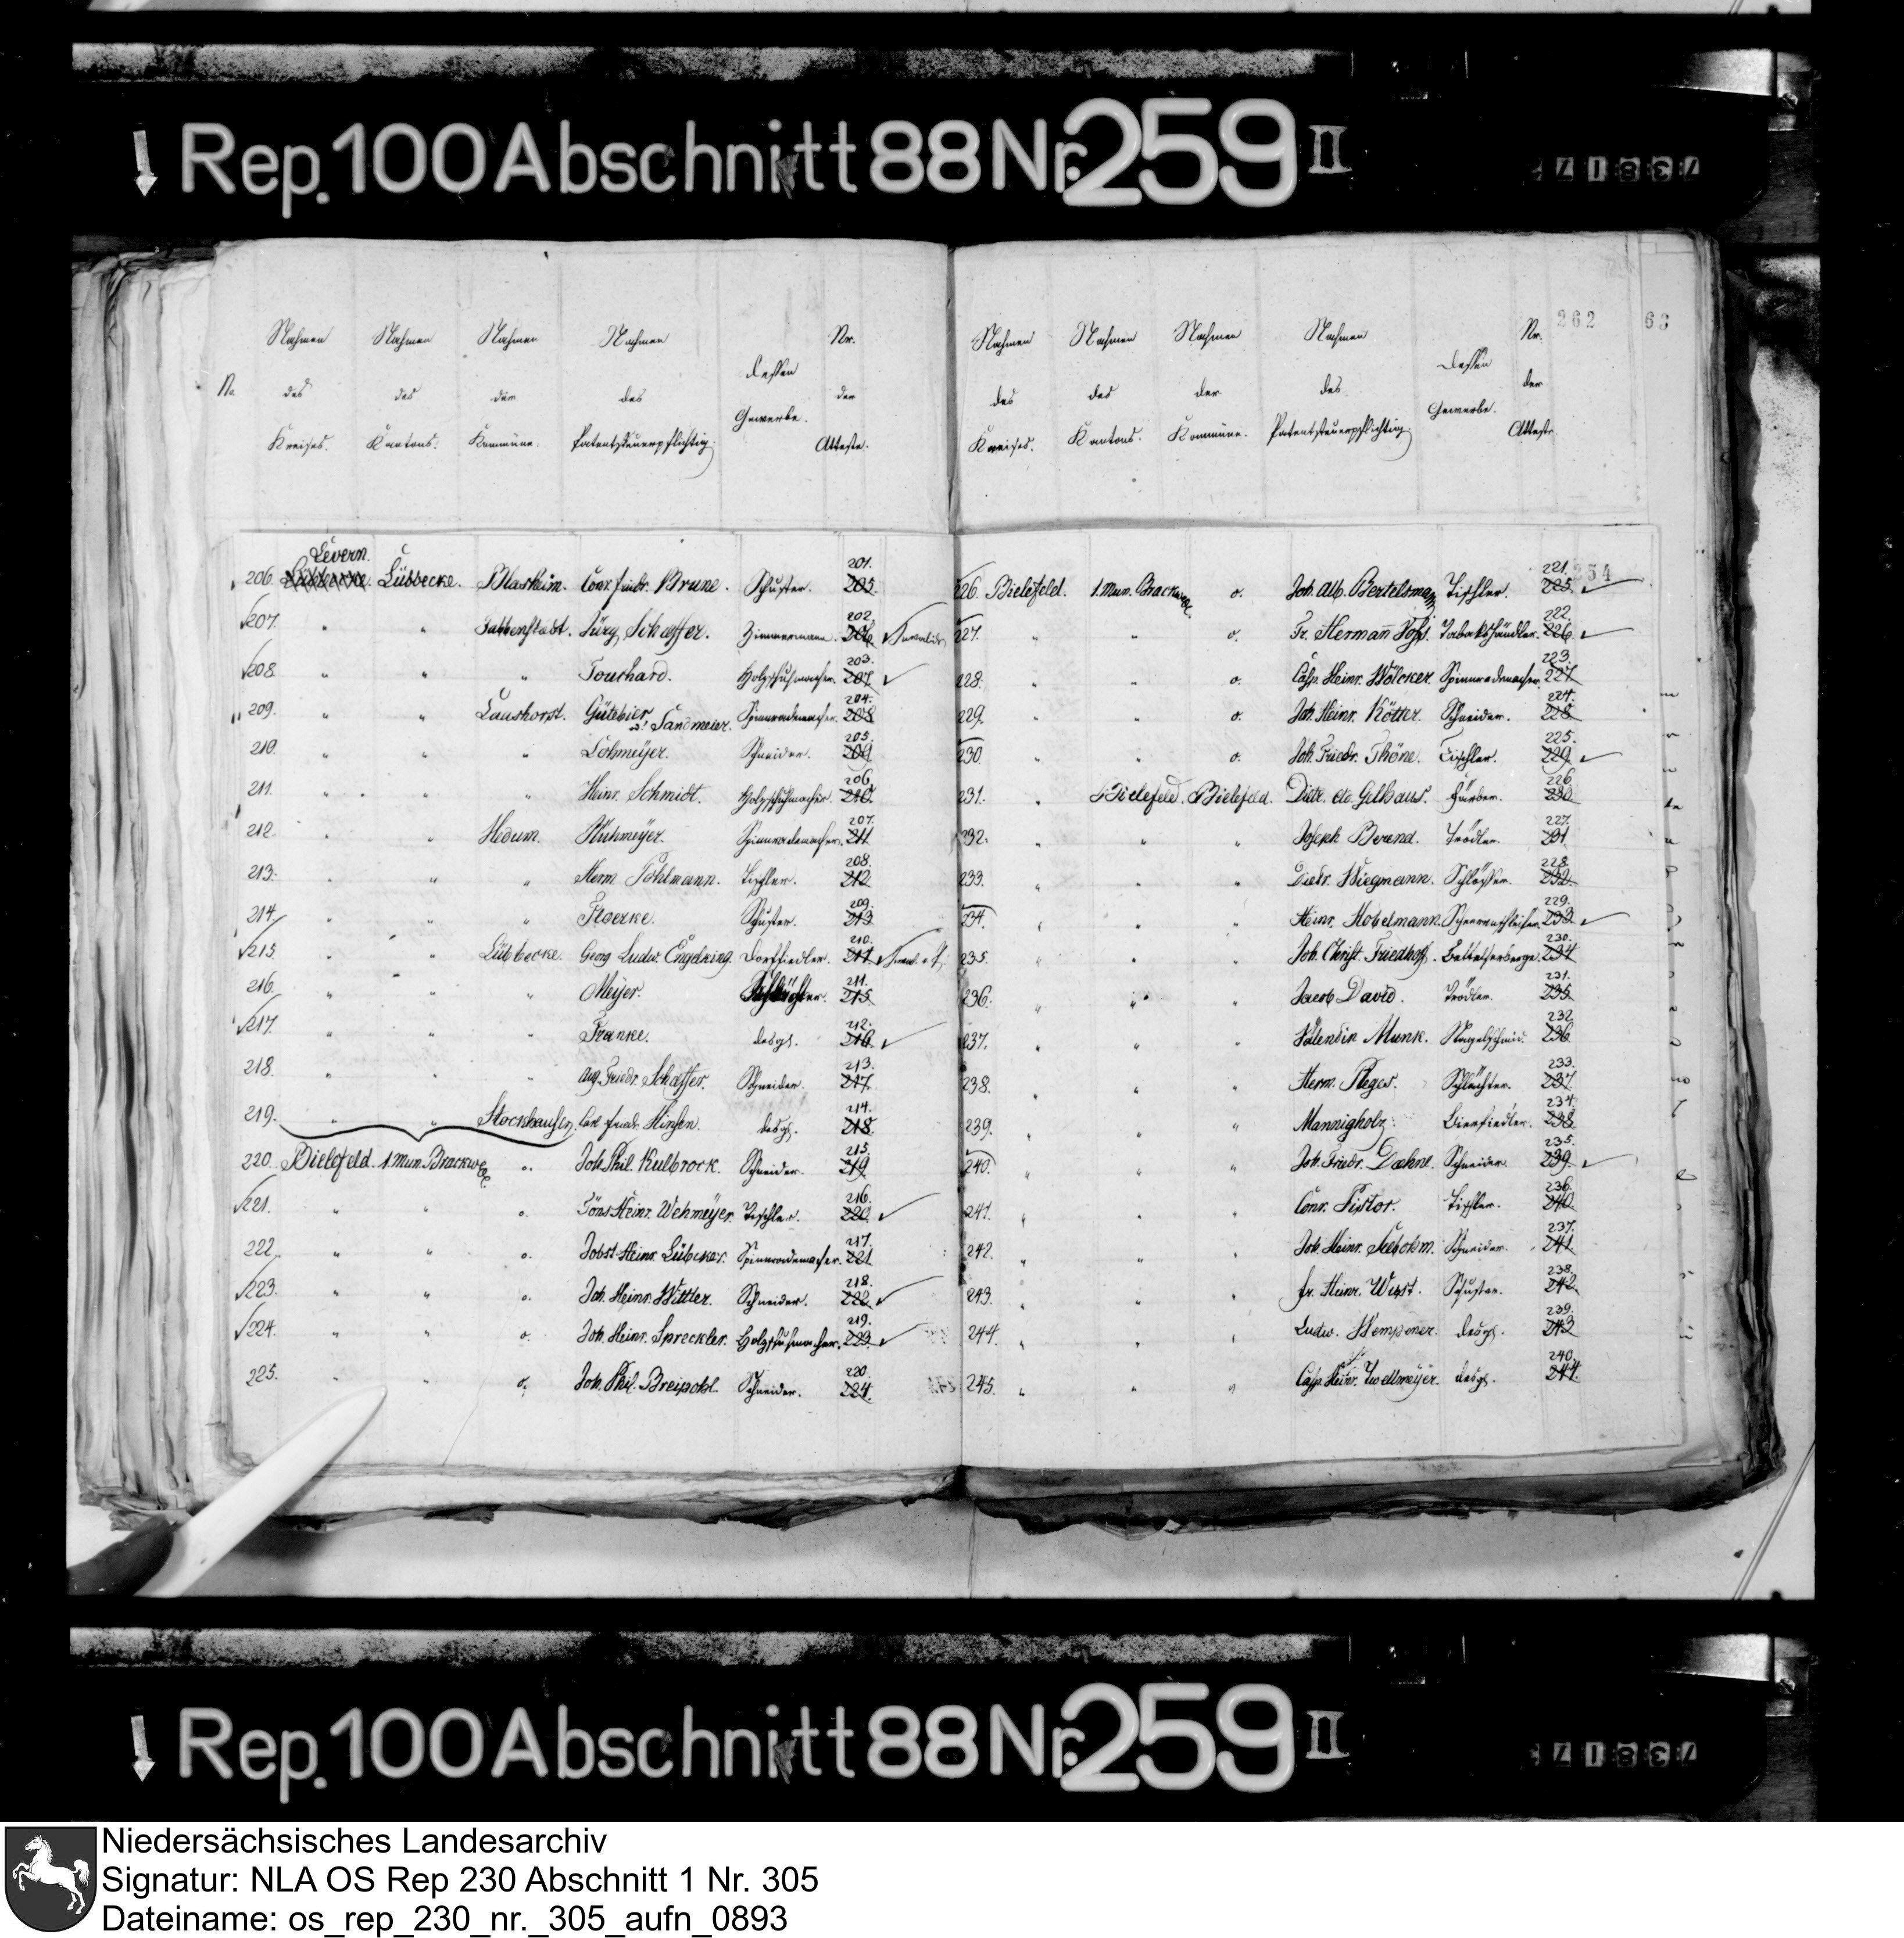 Rep. 100 Abschnitt 88 Nr. 259 II
73817
262 63
Nahmen Nahmen Nahmen Nahmen Nr.
dessen
No des des der des der
Gewerbe.
Kreises. Kantons. Kommüne. Patentsteuerpflichtig. Atteste.
Nahmen Nahmen Nahmen Nahmen Nr.
dessen
des des der des der
Gewerbe.
Kreises. Kantons. Kommüne. Patentsteuerpflichtig. Atteste
Levern. 201.
206. Lübbecke. Lübbecke. Blasheim. Conr. Friedr. Brune. Schuster. 205.
202.
207. " " Gabbenstädt. Jürg. Schaffer. Zimmermann. 206.
203.
208 " " " Touchard. Holzschuhmacher. 207.
204.
209. " " Lashorst. Gütebier Spinnrademacher. 208
Sandmeier.
205.
210. " " " Lohmeÿer. Schneider. 209
206.
211. " " " Heinr. Schmidt. Holzschuhmacher. 210.
207.
212. " Hedum. Kuhmeÿer. Spinnrademacher. 211
208.
213. " " Herm. Pohlmann. Tischler. 212
209.
214. " " " Floerke. Schuster. 213
210.
215. " " Lübbecke. Georg Ludw. Engelking. Dorffiedler. 214
211.
216. " " " Meijer. 215
212.
217. " " " Franke. desgl. 216
213.
218. " " " Aug. Friedr. Schaffer. Schneider. 217
214.
219. " " Stockhausen. Carl Friedr. Hinsen. desgl. 218.
215.
220. Bielefeld. 1. Mun. Brackwede o. Joh. Phil. Kulbrock. Schneider. 219
216.
221. " " o. Töns Heinr. Wehmeÿer. Tischler. 220
217.
222. " " o. Jobst Heinr. Lübcker. Spinnrademacher. 221
218.
223. " " o. Joh. Heinr. Wittler. Schneider. 222
219.
224. " " o. Joh. Heinr. Spreckler. Holzschuhmacher. 223
220.
225. " " o. Joh. Phil. Breipohl. Schneider. 224.
254
221.
226. Bielefeld. 1. Mun. Brackwede o. Joh. Alb. Bertelsmann Tischler. 225
222.
227. " " o. Fr. Hermañ Voss. Tabakshändler. 226
223.
228. " " o. Casp. Heinr. Wölcker. Spinnrademacher. 227.
224.
229. " " o. Joh. Heinr. Kötter. Schneider. 228
225.
230 " " o. Joh. Friedr. Thöne. Tischler. 229.
226.
231. " Bielefeld. Bielefeld. Dietr. Gelhaus. Färber. 230
227.
232. " " " Joseph Berend. Trödler. 231
228.
233. " " " Dietr. Wiegmann. Schlösser. 232.
229.
234. " " " Heinr. Hobelmann. Scheerenschleifer. 233.
230.
235. " " Joh. Christ. Friedhoff. 234
231.
236. " " " Jacob David. Trödler. 235.
232.
237. " " " Valendin Munk. Nagelschmid. 236
233.
238. " " " Herm. Pleges. Schlächter. 237.
234.
239. " " " Mannigholz. Bierfiedler. 238
235.
240. " " " Joh. Friedr. Daehne. Schneider. 239.
236.
241. " " " Conr. Pistor. Tischler. 240.
237.
242. " " " Joh. Heinr. Schneider. 241
238.
243. " " " Fr. Heinr. Wüst. Schuster. 242.
239.
244. " " " Ludw. Kempener. desgl. 243
240.
245. " " " Casp. Heinr. Twellmeÿer. desgl. 244.
Rep. 100 Abschnitt 88 Nr. 259 II
73817
Niedersächsisches Landesarchiv
Signatur: NLA OS Rep 230 Abschnitt 1 Nr. 305
Dateiname: os_rep_230_nr._305_aufn_0893